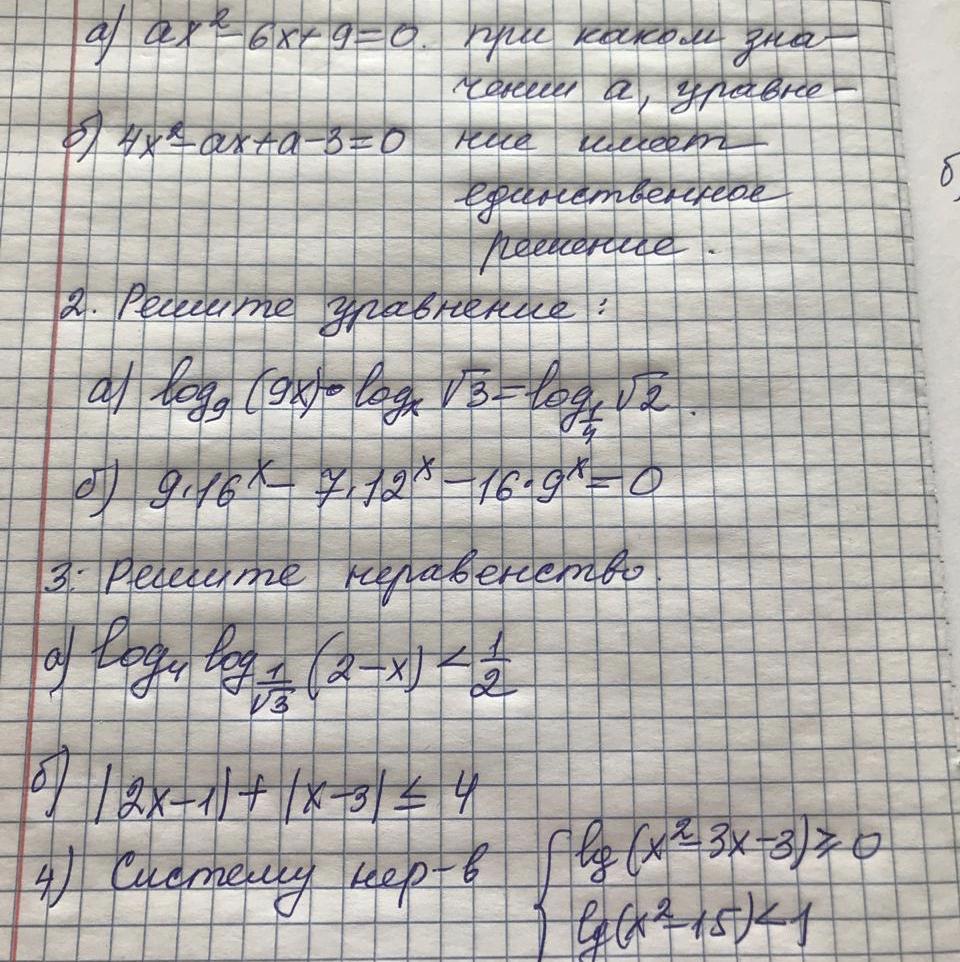 а) ax²-6x+9=0. при каком зна-
чении а, уравне-
б) 4x²-ax+a-3=0 ние имеет
единственное
решение.
б)
2. Решите уравнение:
а) log₉(9x)·logₓ√3=log_{1/4}√2.
б) 9·16ˣ-7·12ˣ-16·9ˣ=0
3. Решите неравенство.
а) log₄log_{1/√3}(2-x)<1/2
б) |2x-1|+|x-3|≤4
4) Систему нер-в { lg(x²-3x-3)≥0
lg(x²-15)<1